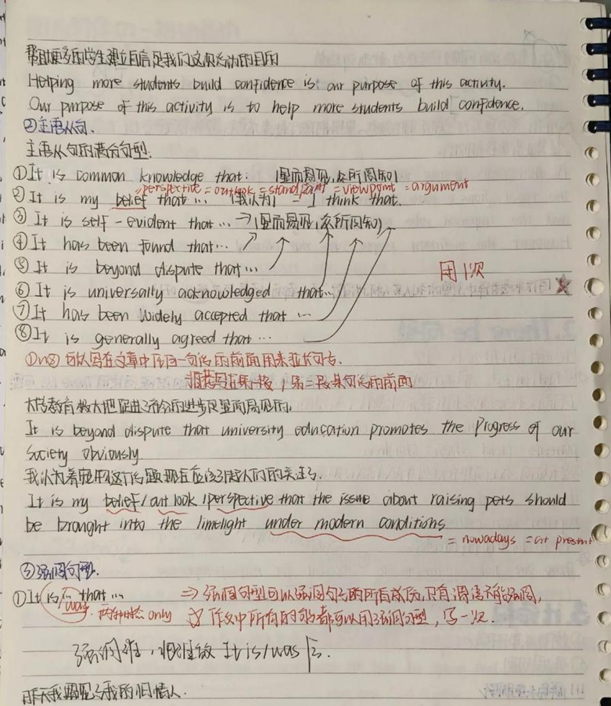 帮助更多的学生建立自信是我们这次活动的目的
Helping more students build confidence is our purpose of this activity.
Our purpose of this activity is to help more students build confidence.
②主语从句.
主语从句的满分句型.
①It is common knowledge that: 显而易见,众所周知
perspective = outlook = standpoint = viewpoint = argument
②It is my belief that... (我认为) = I think that.
③It is self-evident that... → 显而易见,众所周知
④It has been found that...
⑤It is beyond dispute that...
用1次
⑥It is universally acknowledged that...
⑦It has been widely accepted that ...
⑧It is generally agreed that ...
①~⑧可以写在文章中任何一句话的前面用来拉长句子
推荐写在第一段/第三段某句话的前面
大学教育极大地促进了社会的进步是显而易见的.
It is beyond dispute that university education promotes the Progress of our
society obviously
我认为养宠物这个话题现在应该引起人们的关注了.
It is my belief/out look/perspective that the issue about raising pets should
be brought into the limelight under modern conditions
= nowadays = at present
③强调句型.
①It is that... ⇒ 强调句型可以强调句子的所有成份,只有谓语不能强调,
was 两种时态 only 作文中所有的句子都可以用强调句型,写一次.
强调谁,谁就放 It is/was 后.
昨天我遇见了我的旧情人.